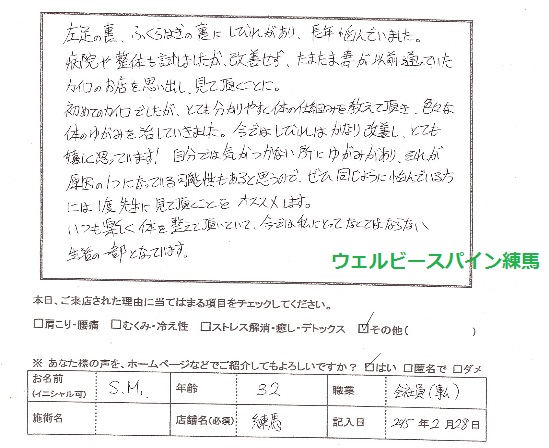 左足の裏、ふくらはぎの裏にしびれがあり、長年悩んでいました。
病院や整体も試しましたが、改善せず、たまたま妻が以前通っていた
カイロのお店を思い出し、見て頂くことに。
初めてのカイロでしたが、とても分かりやすく体の仕組みを教えて頂き、色々な
体のゆがみを治していきました。今ではしびれはかなり改善し、とても
嬉しく思っています! 自分では気がつかない所にゆがみがあり、それが
原因の1つになっている可能性もあると思うので、ぜひ同じように悩んでいる方
には1度先生に見て頂くことをオススメします。
いつも楽しく体を整えて頂いていて、今では私にとってなくてはならない
生活の一部となってます。
ウェルビースパイン練馬
本日、ご来店された理由に当てはまる項目をチェックしてください。
□肩こり・腰痛 □むくみ・冷え性 □ストレス解消・癒し・デトックス ☑その他( )
※ あなた様の声を、ホームページなどでご紹介してもよろしいですか? ☑はい □匿名で □ダメ
お名前(イニシャル可) S.M. 年齢 32 職業 会社員(事ム)
施術名 店舗名(必須) 練馬 記入日 H25年2月28日